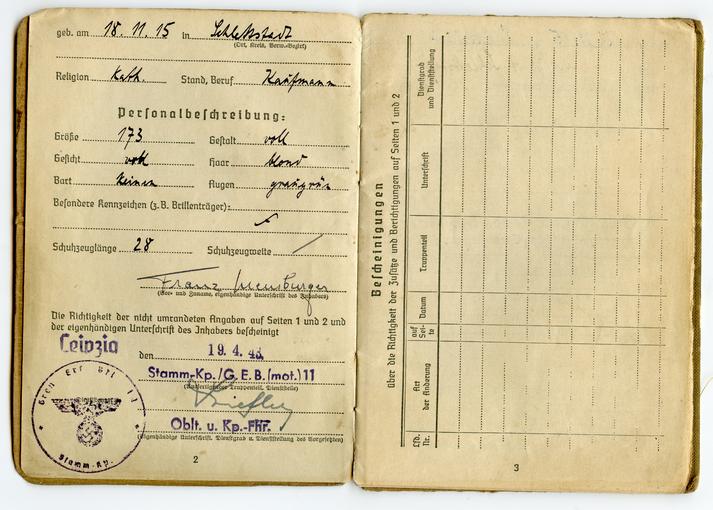 geb. am 18. 11. 15 in Schlettstadt
(Ort, Kreis, Verw.-Bezirk)
Religion Kath. Stand, Beruf Kaufmann
Personalbeschreibung:
Größe 173 Gestalt voll
Gesicht voll Haar blond
Bart keinen Augen graugrün
Besondere Kennzeichen (z. B. Brillenträger):
Schuhzeuglänge 28 Schuhzeugweite
Franz
(Vor- und Zuname, eigenhändige Unterschrift des Inhabers)
Die Richtigkeit der nicht umrandeten Angaben auf Seiten 1 und 2 und
der eigenhändigen Unterschrift des Inhabers bescheinigt
Leipzig den 19. 4. 43.
Stamm-Kp./G.E.B.(mot.)11
(Ausfertigender Truppenteil, Dienststelle)
Oblt. u. Kp.-Fhr.
(Eigenhändige Unterschrift, Dienstgrad u. Dienststellung des Vorgesetzten)
Stamm-Kp.
2
Bescheinigungen
über die Richtigkeit der Zusätze und Berichtigungen auf Seiten 1 und 2
Lfd. Nr.
Art der Änderung
auf Seite
Datum
Truppenteil
Unterschrift
Dienstgrad und Dienststellung
3